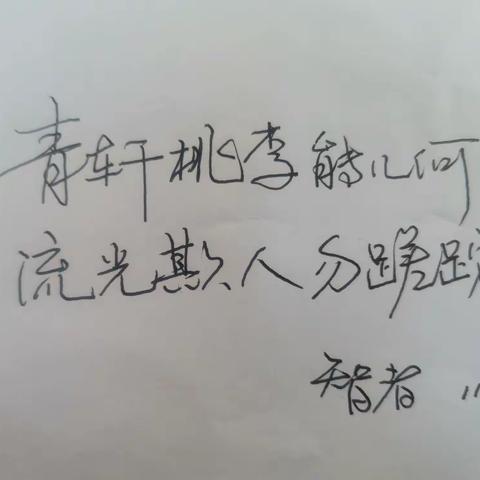 青轩桃李能几何
流光欺人勿蹉
智者